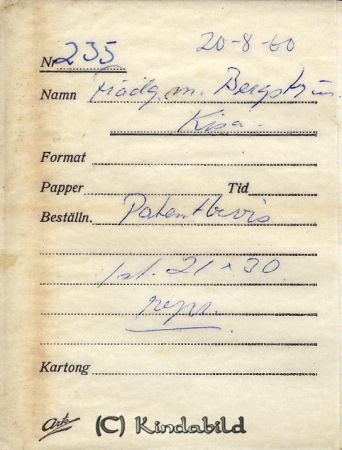 20-8-60
Nr 235
Namn Trädg.m. Bergström
Kisa.
Format
Papper Tid
Beställn. Patentbevis
1 st. 21 x 30
repr.
Kartong
Ark (C) Kindabild